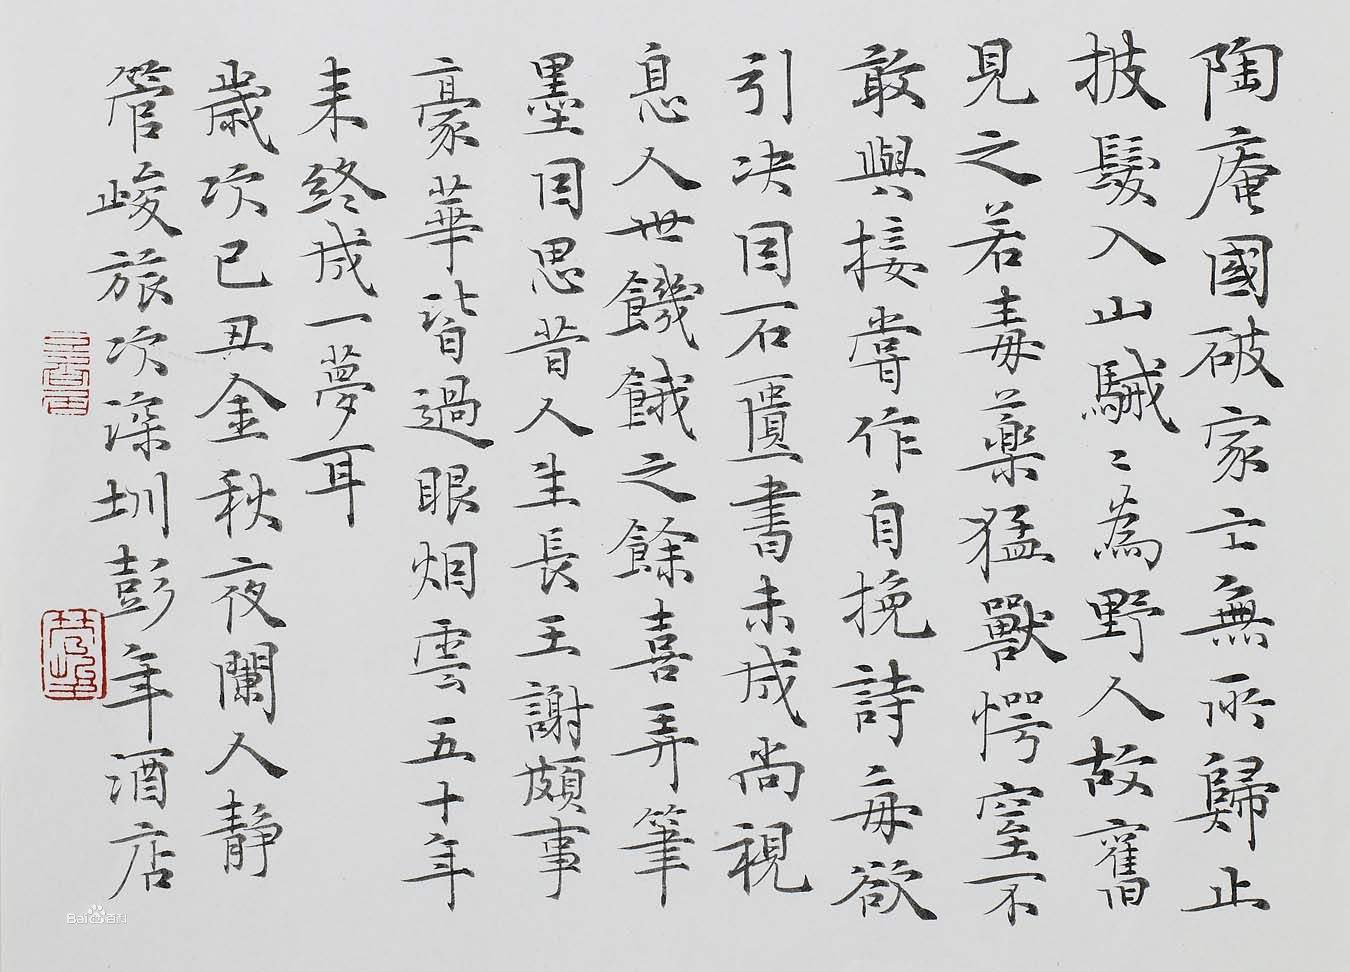 陶庵國破家亡無所歸止
披髮入山駴〻為野人故舊
見之若毒藥猛獸愕窒不
敢與接嘗作自挽詩每欲
引決因石匱書未成尚視
息人世饑餓之餘喜弄筆
墨因思昔人生長王謝頗事
豪華皆過眼烟雲五十年
来終成一夢耳
歲次己丑金秋夜闌人静
管峻旅次深圳彭年酒店
Baidu百科